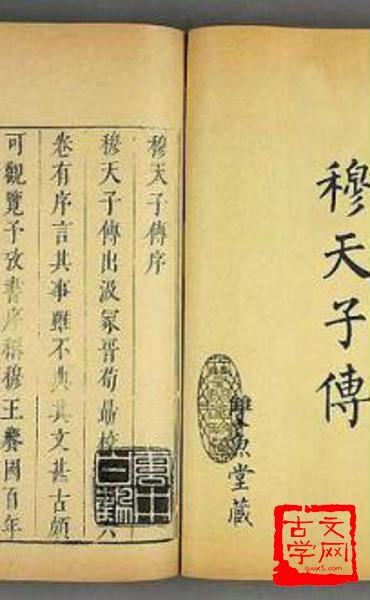 穆天子傳
雙魚堂藏
穆天子傳序
穆天子傳出汲冢晉荀勗校
六
卷有序言其事雖不典其文甚古頗
可觀覽予攷書序稱穆王饗國百年
古文
学网
gwx5.com